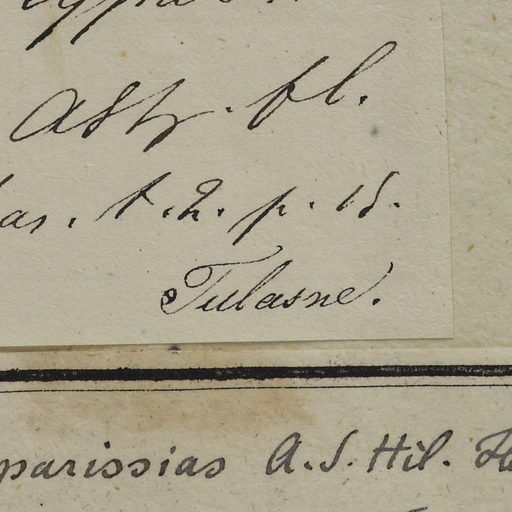 A St h. fl.
as. t. 2. p. 15.
Tulasne.
parissias A. S. Hil.